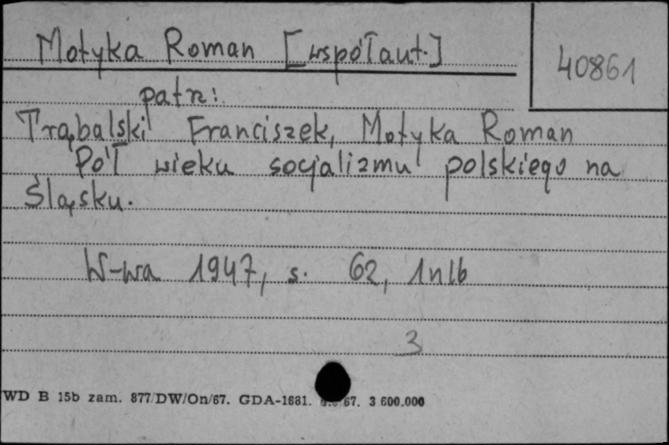 Motyka Roman [współaut.]
40861
patrz:
Trąbalski Franciszek, Motyka Roman
Pół wieku socjalizmu polskiego na
Śląsku.
W-wa 1947, s. 62, 1nlb
3
WD B 15b zam. 877/DW/On/67. GDA-1681. 67. 3 600.000